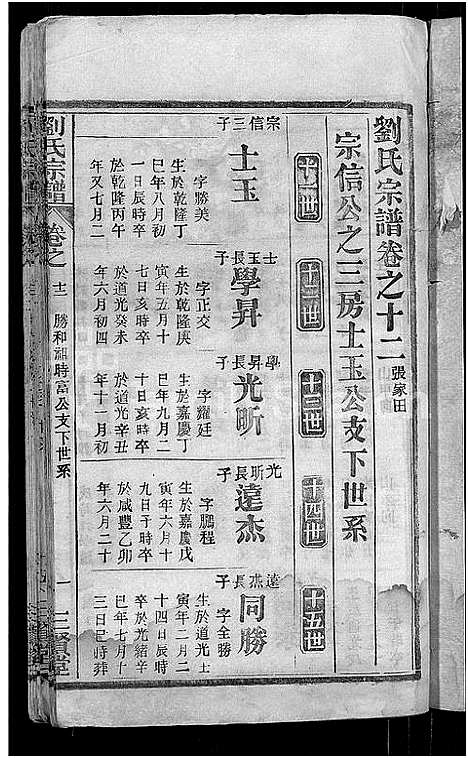 劉氏宗譜卷之十二 張家田
宗信公之三房士玉公支下世系
十一世
十二世
十三世
十四世
十五世
宗信三子
士玉
字勝美
生於乾隆丁
巳年八月初
一日辰時卒
於乾隆丙午
年又七月二
士玉長子
學昇
字正交
生於乾隆庚
寅年五月十
七日亥時卒
於道光癸未
年六月初四
學昇長子
光昕
字耀廷
生於嘉慶丁
巳年九月二
十日亥時卒
於道光辛丑
年十一月初
光昕長子
達杰
字鵬程
生於嘉慶戊
寅年六月十
九日子時卒
於咸豐乙卯
年六月二十
達杰長子
同勝
字全勝
生於道光士
寅年二月二
十四日辰時
卒於光緒辛
巳年七月
三日巳時葬
劉氏宗譜
卷之十二
勝和韶時富公支下世系
一
三賢堂